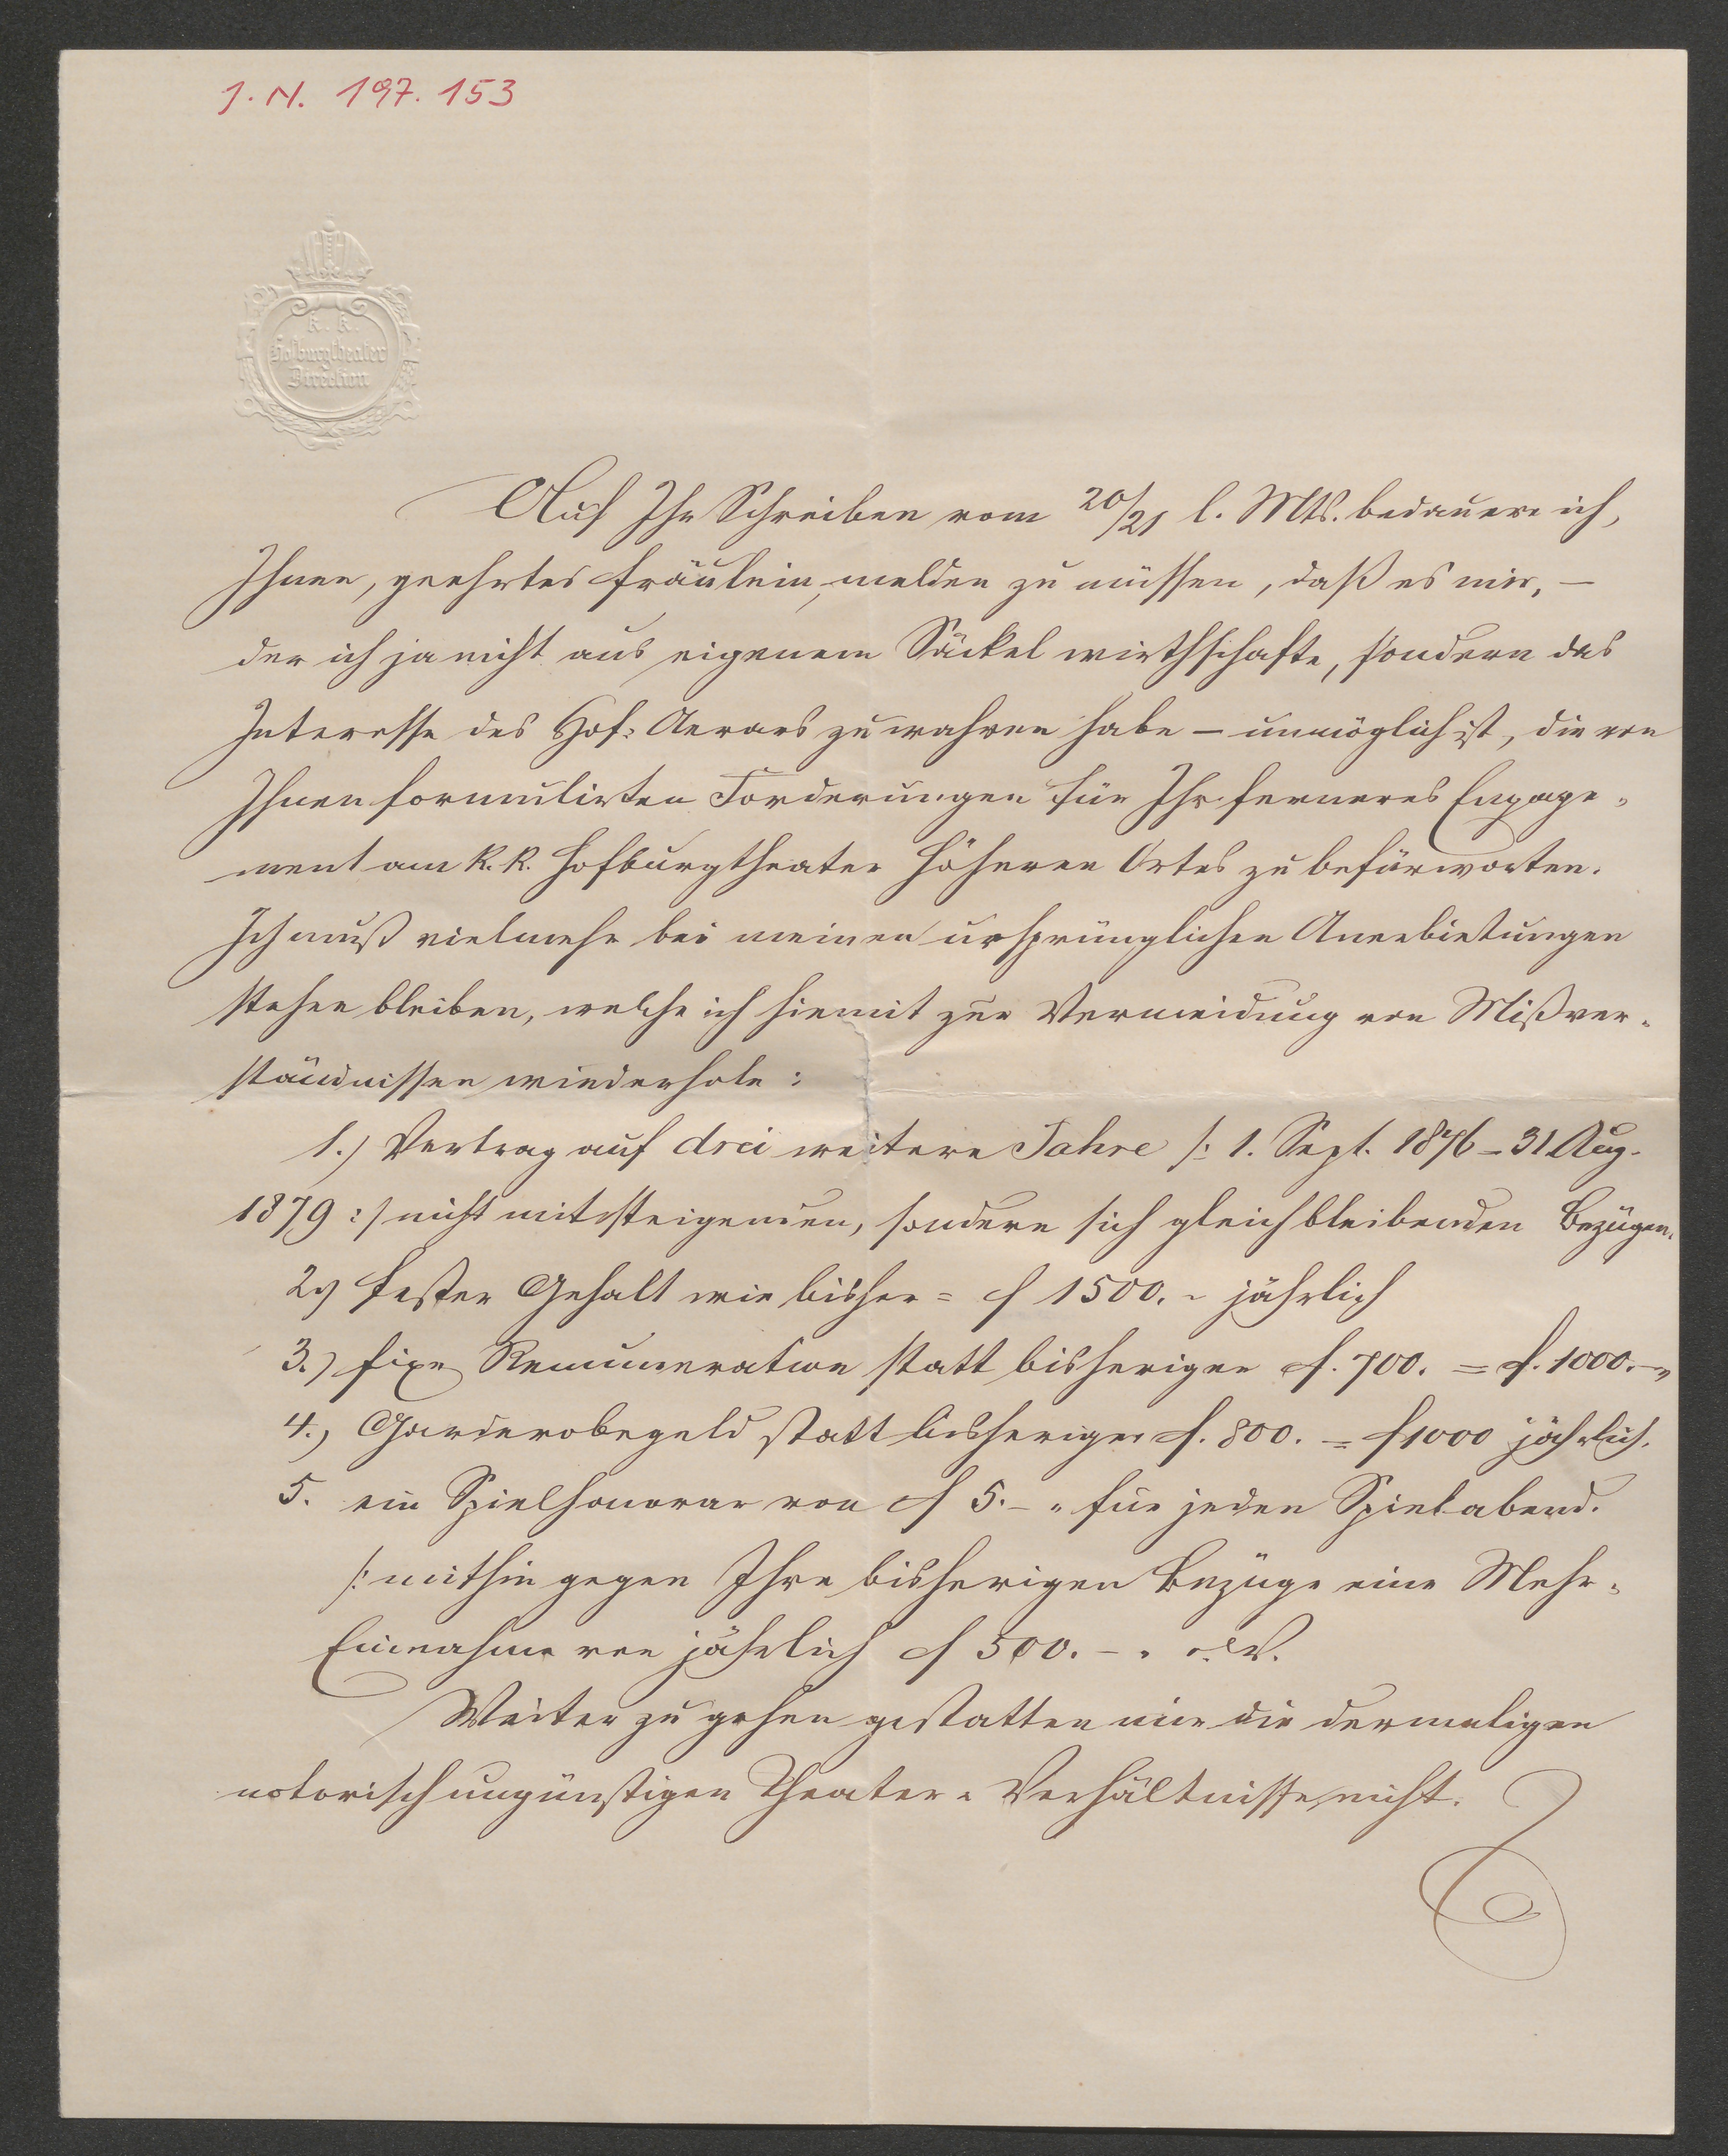 J. N. 197.153
k. k.
Hofburgtheater
Direction
Auf Ihr Schreiben vom 20/21 l. Mts. bedauere ich,
Ihnen, geehrtes Fräulein, melden zu müssen, daß es mir, –
der ich ja nicht aus eigenem Säckel wirthschafte, sondern das
Interesse des Hof-Aerars zu wahren habe – unmöglich ist, die von
Ihnen formulirten Forderungen für Ihr ferneres Engage-
ment am k. k. Hofburgtheater höheren Ortes zu befürworten.
Ich muß vielmehr bei meinen ursprünglichen Anerbietungen
stehen bleiben, welche ich hiemit zur Vermeidung von Mißver-
ständnissen wiederhole:
1.) Vertrag auf drei weitere Jahre /: 1. Sept. 1876 – 31 Aug.
1879 :/ nicht mit steigenden, sondern sich gleich bleibenden Bezügen.
2.) fester Gehalt wie bisher = f 1500. - jährlich
3.) fixe Remuneration statt bisheriger f. 700. = f. 1000. - "
4.) Garderobegeld statt bisheriger f. 800. = f 1000 jährlich.
5. ein Spielhonorar von f 5. - " für jeden Spielabend.
/: mithin gegen Ihre bisherigen Bezüge eine Mehr-
Einnahme von jährlich f 500. - " ö. W.
Weiter zu gehen gestatten mir die dermaligen
notorisch ungünstigen Theater-Verhältnisse nicht.